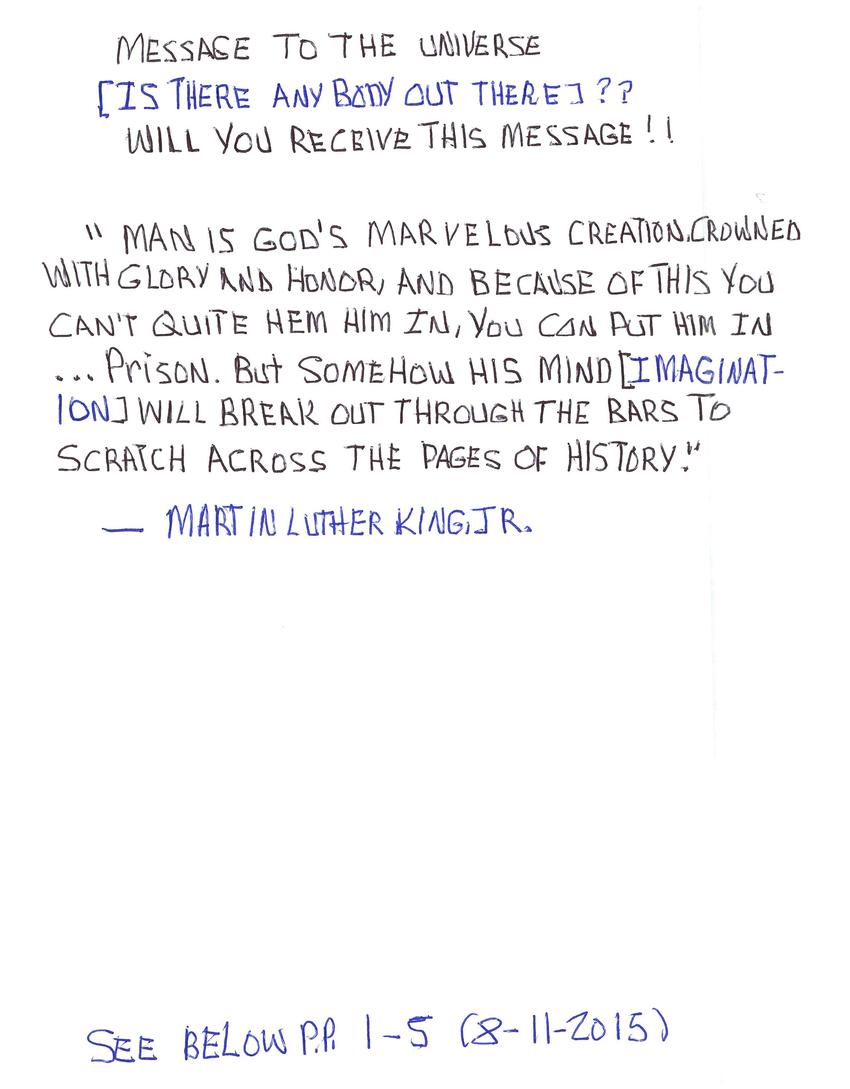 MESSAGE TO THE UNIVERSE
[IS THERE ANY BODY OUT THERE] ??
WILL YOU RECEIVE THIS MESSAGE !!
" MAN IS GOD'S MARVELOUS CREATION.CROWNED
WITH GLORY AND HONOR, AND BECAUSE OF THIS YOU
CAN'T QUITE HEM HIM IN, YOU CAN PUT HIM IN
... PRISON. BUT SOMEHOW HIS MIND [IMAGINAT-
ION] WILL BREAK OUT THROUGH THE BARS TO
SCRATCH ACROSS THE PAGES OF HISTORY."
— MARTIN LUTHER KING, JR.
SEE BELOW P.P. 1-5 (8-11-2015)